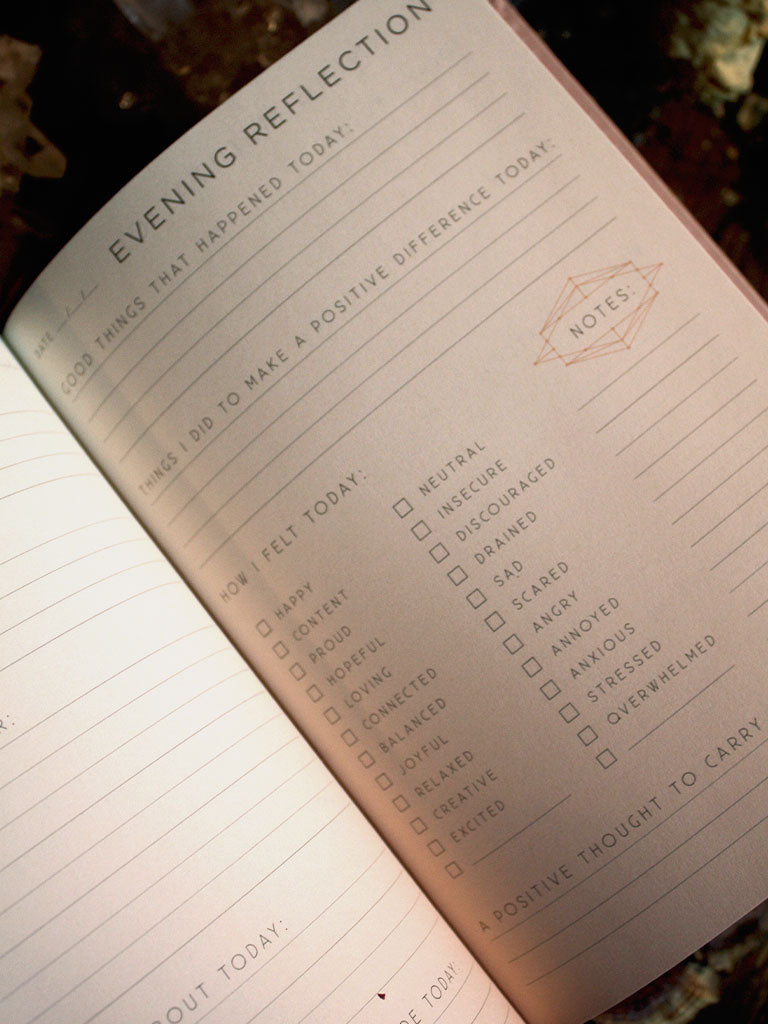 EVENING REFLECTION
DATE / /
GOOD THINGS THAT HAPPENED TODAY:
THINGS I DID TO MAKE A POSITIVE DIFFERENCE TODAY:
NOTES:
HOW I FELT TODAY:
HAPPY
CONTENT
PROUD
HOPEFUL
LOVING
CONNECTED
BALANCED
JOYFUL
RELAXED
CREATIVE
EXCITED
NEUTRAL
INSECURE
DISCOURAGED
DRAINED
SAD
SCARED
ANGRY
ANNOYED
ANXIOUS
STRESSED
OVERWHELMED
A POSITIVE THOUGHT TO CARRY
TODAY:
TODAY: